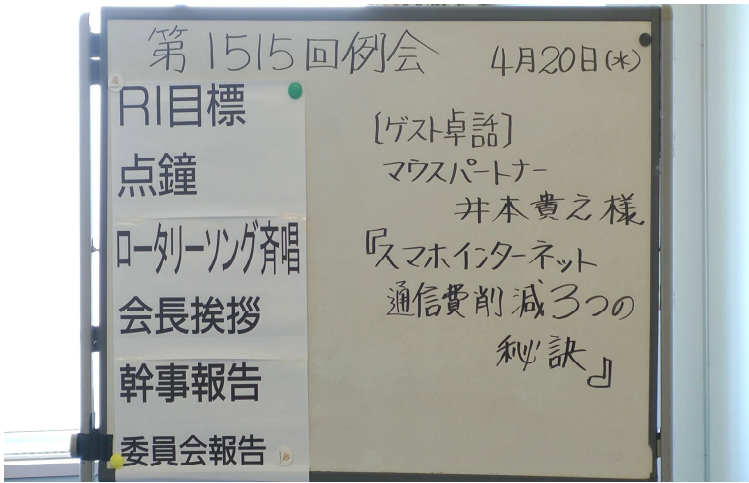 第1515回例会 4月20日(水)
RI目標
点鐘
ロータリーソング斉唱
会長挨拶
幹事報告
委員会報告
[ゲスト卓話]
マウスパートナー
井本貴之様
『スマホインターネット
通信費削減3つの
秘訣』